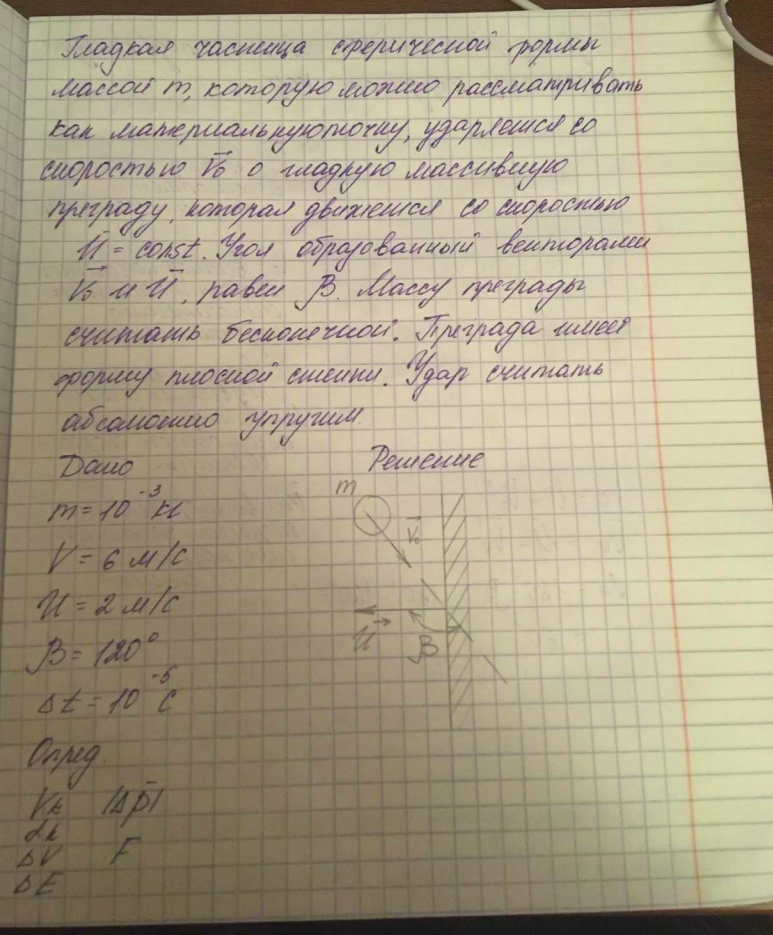 Гладкая частица сферической формы
массой m, которую можно рассматривать
как материальную точку, ударяется со
скоростью V₀ о гладкую массивную
преграду, которая движется со скоростью
U = const. Угол образованный векторами
V₀ и U, равен β. Массу преграды
считать бесконечной. Преграда имеет
форму плоской стенки. Удар считать
абсолютно упругим.
Дано
Решение
m = 10⁻³ кг
V = 6 м/с
U = 2 м/с
β = 120°
Δt = 10⁻⁵ с
m
V₀
U
β
Опред.
Vк |Δp|
αк
ΔV F
ΔE